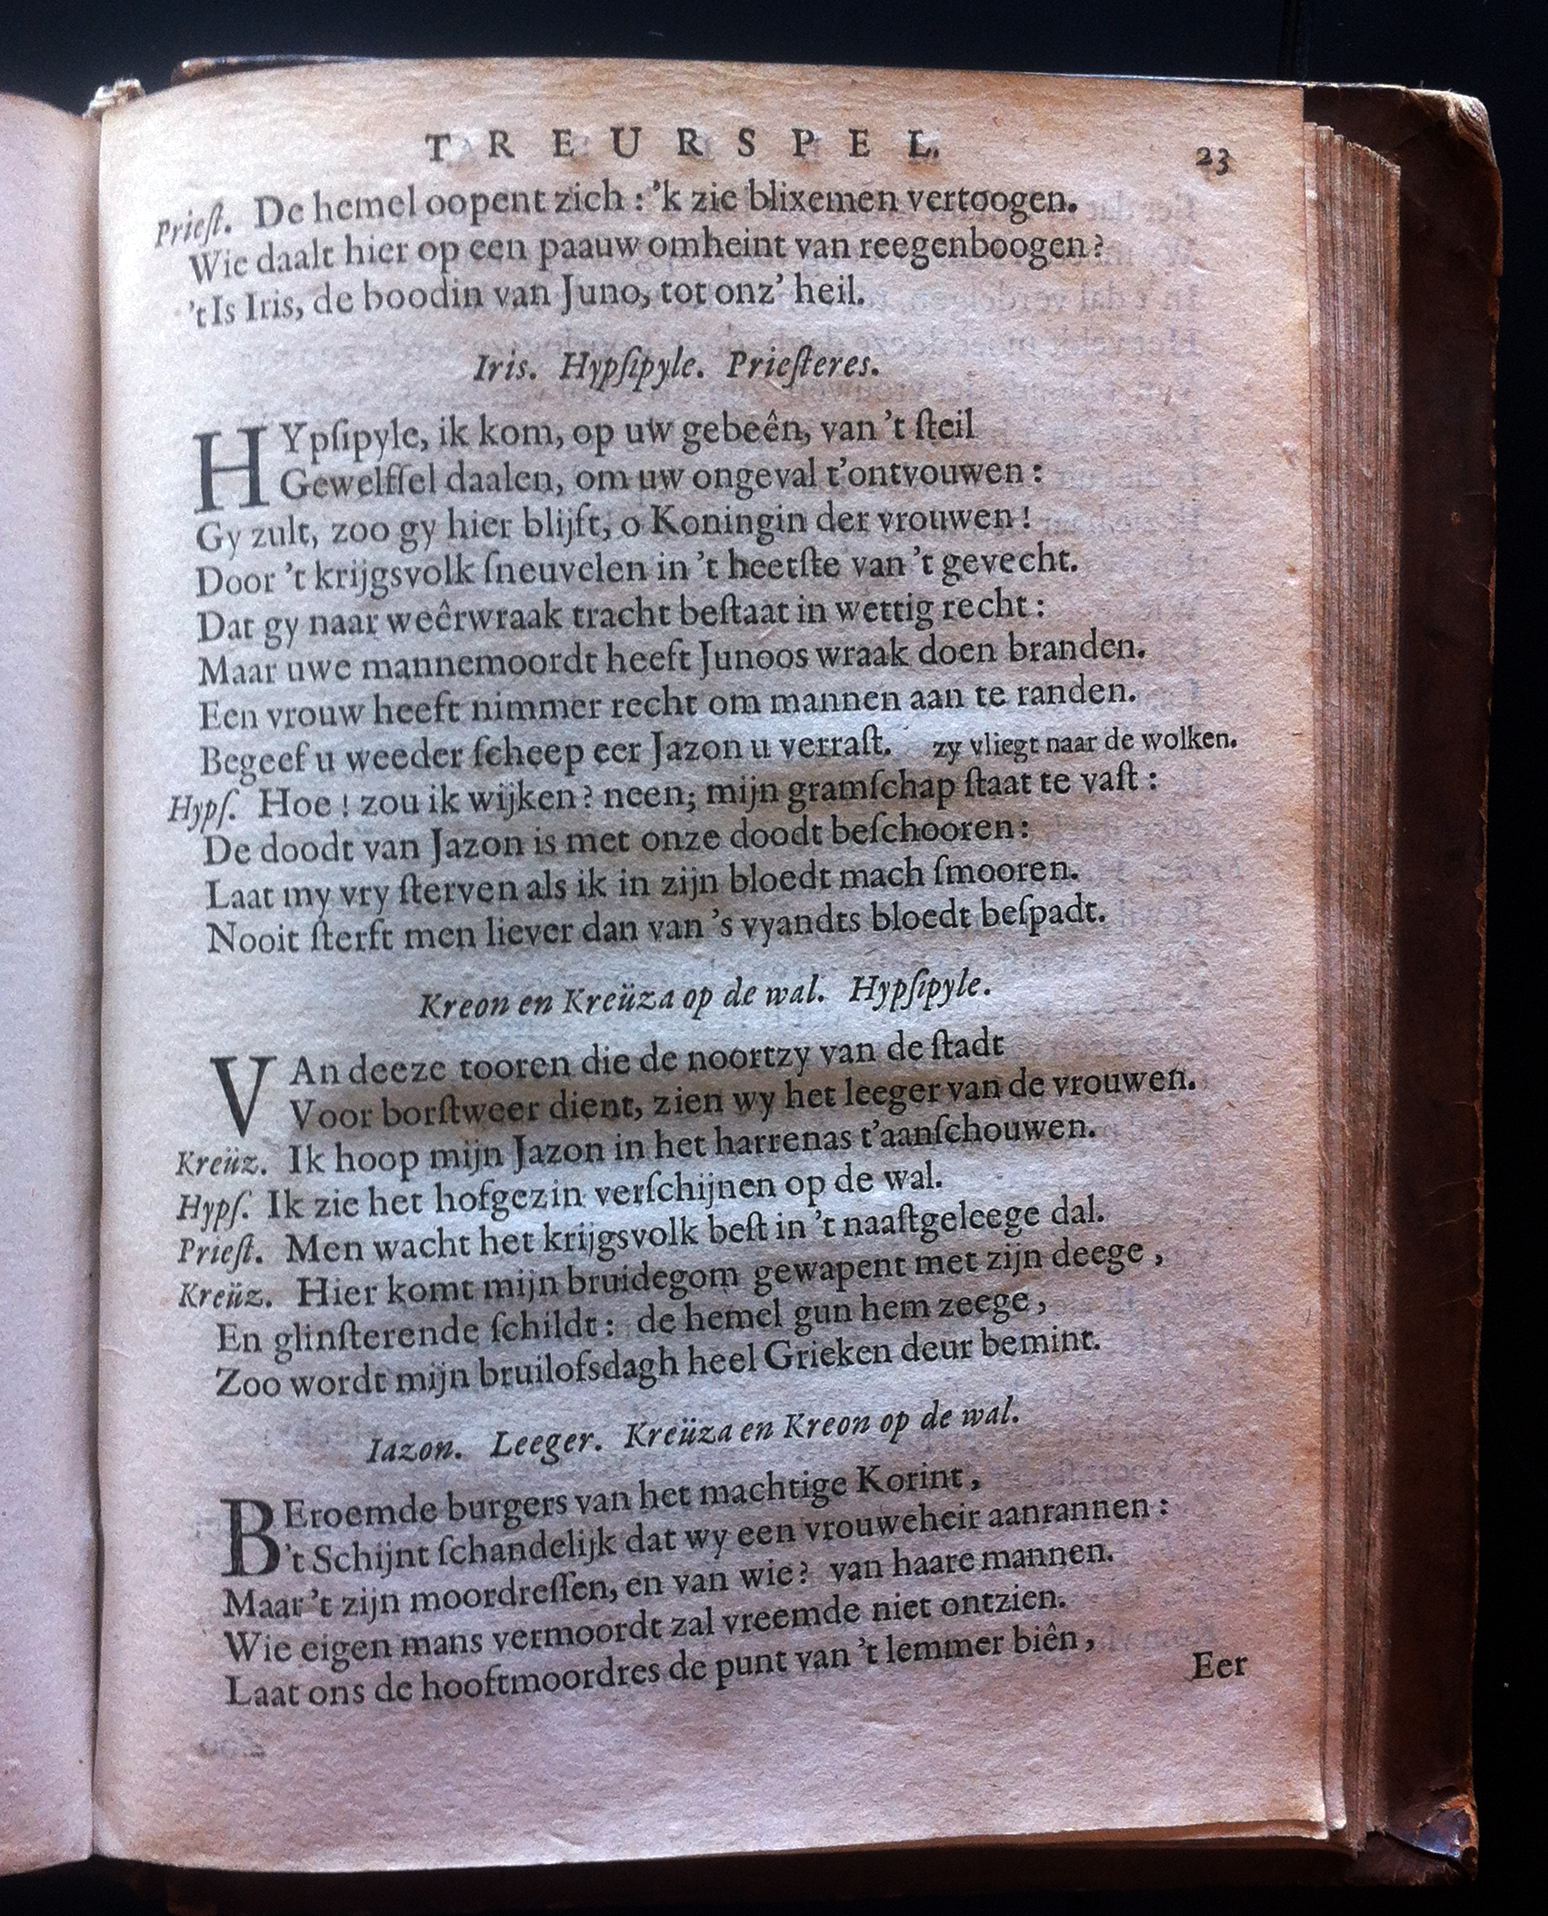 TREURSPEL. 23
Prieſt. De hemel oopent zich : 'k zie blixemen vertoogen.
Wie daalt hier op een paauw omheint van reegenboogen?
't Is Iris, de boodin van Juno, tot onz' heil.
Iris. Hypſipyle. Prieſteres.
HYpſipyle, ik kom, op uw gebeên, van 't ſteil
Gewelfſel daalen, om uw ongeval t'ontvouwen :
Gy zult, zoo gy hier blijft, o Koningin der vrouwen!
Door 't krijgsvolk ſneuvelen in 't heetſte van 't gevecht.
Dat gy naar weêrwraak tracht beſtaat in wettig recht :
Maar uwe mannemoordt heeft Junoos wraak doen branden.
Een vrouw heeft nimmer recht om mannen aan te randen.
Begeef u weeder ſcheep eer Jazon u verraſt. zy vliegt naar de wolken.
Hypſ. Hoe! zou ik wijken? neen; mijn gramſchap ſtaat te vaſt :
De doodt van Jazon is met onze doodt beſchooren:
Laat my vry ſterven als ik in zijn bloedt mach ſmooren.
Nooit ſterft men liever dan van 's vyandts bloedt beſpadt.
Kreon en Kreüza op de wal. Hypſipyle.
VAn deeze tooren die de noortzy van de ſtadt
Voor borſtweer dient, zien wy het leeger van de vrouwen.
Kreüz. Ik hoop mijn Jazon in het harrenas t'aanſchouwen.
Hypſ. Ik zie het hofgezin verſchijnen op de wal.
Prieſt. Men wacht het krijgsvolk beſt in 't naaſtgeleege dal.
Kreüz. Hier komt mijn bruidegom gewapent met zijn deege,
En glinſterende ſchildt: de hemel gun hem zeege,
Zoo wordt mijn bruilofsdagh heel Grieken deur bemint.
Iazon. Leeger. Kreüza en Kreon op de wal.
BEroemde burgers van het machtige Korint,
't Schijnt ſchandelijk dat wy een vrouweheir aanrannen :
Maar 't zijn moordreſſen, en van wie? van haare mannen.
Wie eigen mans vermoordt zal vreemde niet ontzien.
Laat ons de hooftmoordres de punt van 't lemmer biên,
Eer